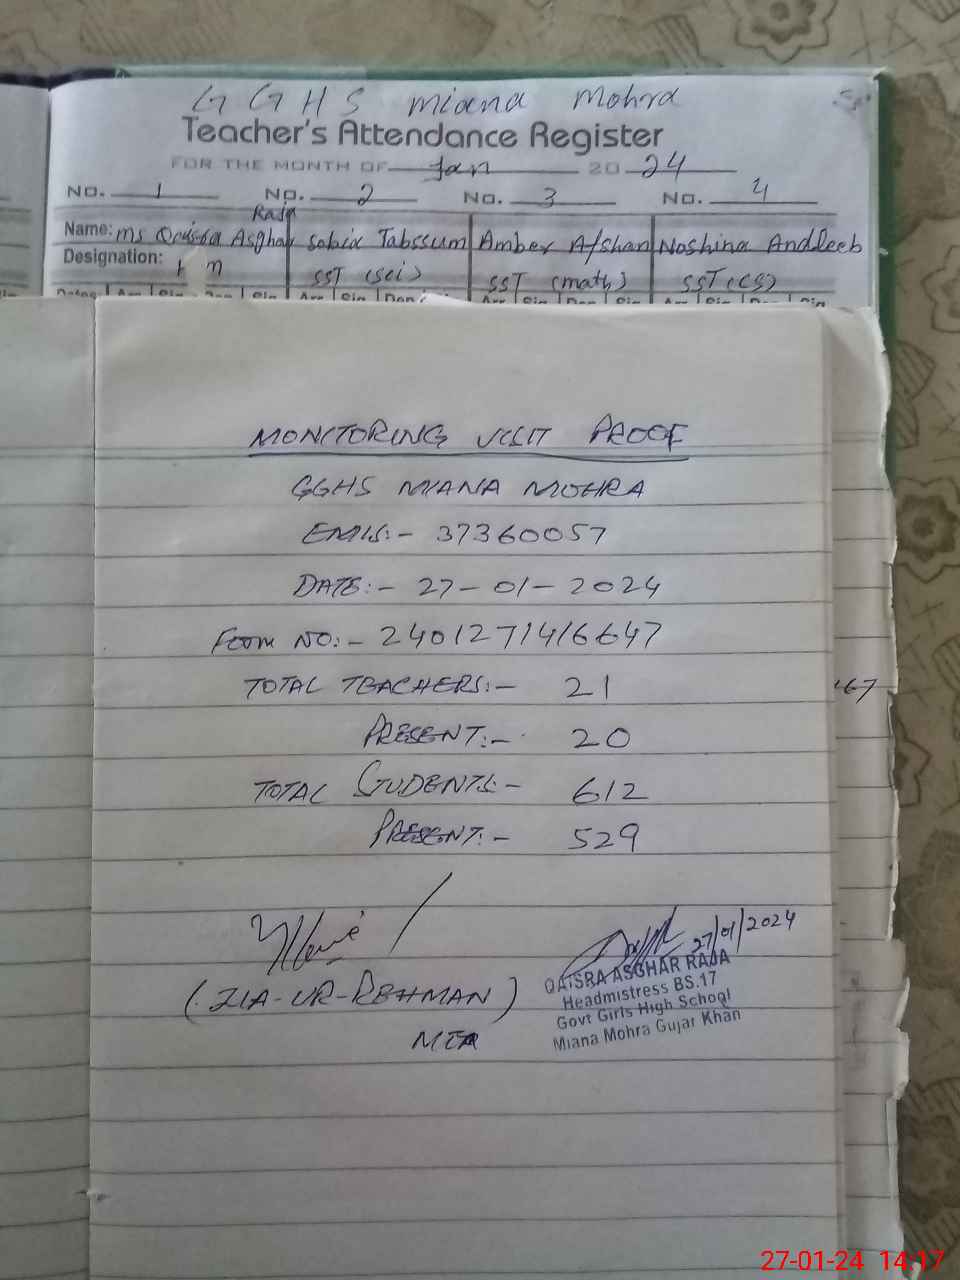 GGHS miana Mohra
Teacher's Attendance Register
FOR THE MONTH OF Jan 2024
No. 1 No. 2 No. 3 No. 4
Raja
Name: ms Qaisra Asghar Sobia Tabssum Amber Afshan Noshina Andleeb
Designation: H m SST (sci) SST (math) SST (CS)
MONITORING VISIT PROOF
GGHS MIANA MOHRA
EMIS:- 37360057
DATE:- 27-01-2024
FORM NO:- 2401271416647
TOTAL TEACHERS:- 21
167
PRESENT:- 20
TOTAL STUDENTS:- 612
PRESENT:- 529
27/01/2024
(ZIA-UR-REHMAN)
MEA
QAISRA ASGHAR RAJA
Headmistress BS.17
Govt Girls High School
Miana Mohra Gujar Khan
27-01-24 14:17